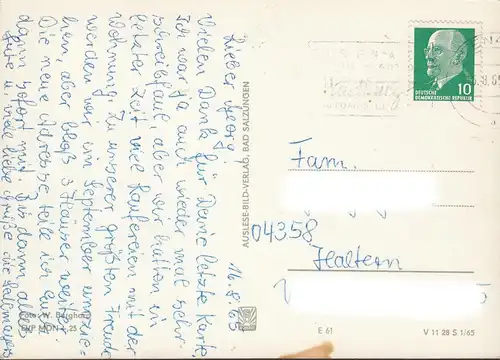 16.8.65
Lieber Georg!
Vielen Dank für Deine letzte Karte.
Ich war ja auch wieder mal sehr
schreibfaul, aber wir hatten in
letzter Zeit viel Laufereien mit der
Wohnung. Zu unserer größten Freude
werden wir im September umzie-
hen, aber bloß 3 Häuser weiter.
Die neue Adresse teile ich Euch
dann sofort mit. Bis dann alles
Gute u. viele liebe Grüße
Foto: W. Burghard
EVP MDN 0,25
AUSLESE-BILD-VERLAG, BAD SALZUNGEN
DEUTSCHE
DEMOKRATISCHE REPUBLIK
10
Fam.
04358
Haltern
E 61
V 11 28 S 1/65